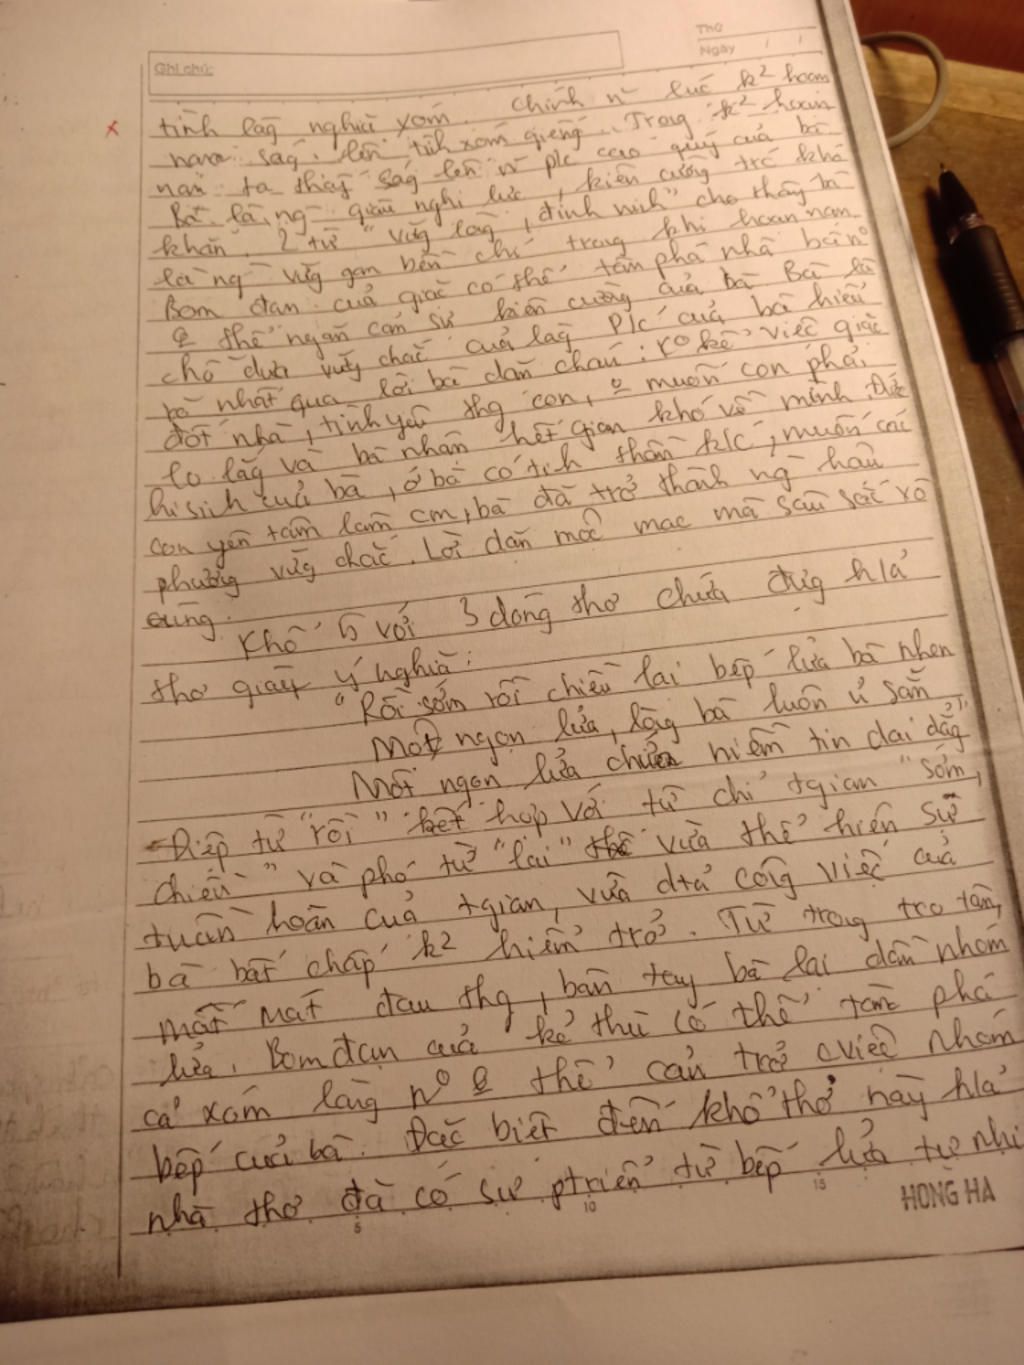 Thứ
Ngày / /
Ghi chú:
tình làg nghĩa xóm. Chính n~ lúc k² hoạn
nạn ság lên tình xóm giềng. Trong k² hoạn
nạn ta thấy ság lên n~ p/c cao quý của bà
Bà là ng~ giàu nghị lực, kiên cường trc khó
khăn. 2 từ "vữg lòg, đinh ninh" cho thấy bà
là ng~ vữg gan bền chí trong khi hoạn nạn
Bom đạn của giặc có thể tàn phá nhà bà nº
o thể ngăn cản sự kiên cường của bà. Bà là
chỗ dựa vữg chắc của làg p/c của bà hiểu
rõ nhất qua lời bà dặn cháu: kº kể việc giặc
đốt nhà, tình yêu thg con, o muốn con phải
lo lắg và bà nhận hết gian khó về mình. Đức
hi sinh của bà, ở bà có tinh thần k/c, muốn các
con yên tâm làm cm, bà đã trở thành ng hậu
phươg vữg chắc. Lời dặn mộc mạc mà sâu sắc vô
cùng.
Khổ 5 với 3 dòng thơ chứa đựg h/ả
thơ giàu ý nghĩa:
"Rồi sớm rồi chiều lại bếp lửa bà nhen
Một ngọn lửa, lòng bà luôn ủ sẵn
Một ngọn lửa chứa niềm tin dai dẳg"
- Điệp từ "rồi" kết hợp với từ chỉ tgian "sớm,
chiều" và phó từ "lại" vừa thể hiện sự
tuần hoàn của tgian, vừa dtả côg việc của
bà bất chấp k² hiểm trở. Từ trong tro tàn,
mất mát đau thg, bàn tay bà lại dần nhóm
lửa. Bom đạn của kẻ thù có thể tàn phá
cả xóm làng nº o thể cản trở cviệc nhóm
bếp của bà. Đặc biệt đến khổ thơ này h/ả
nhà thơ đã có sự ptriển từ bếp lửa tự nhi
5 10 15
HONG HA